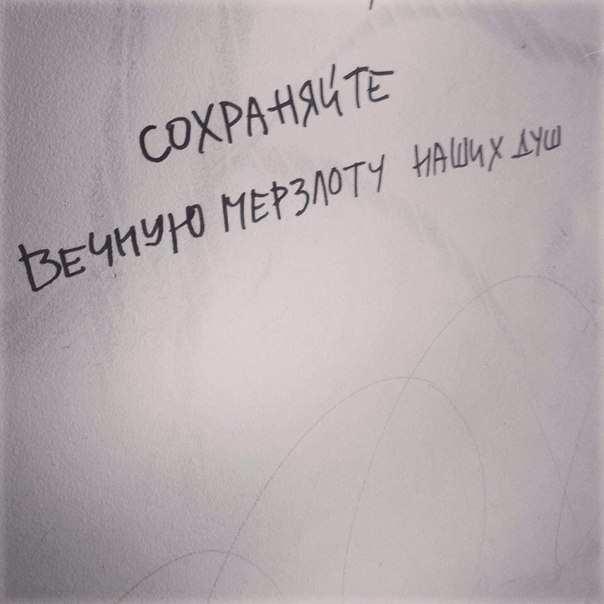 СОХРАНЯЙТЕ
ВЕЧНУЮ МЕРЗЛОТУ НАШИХ ДУШ